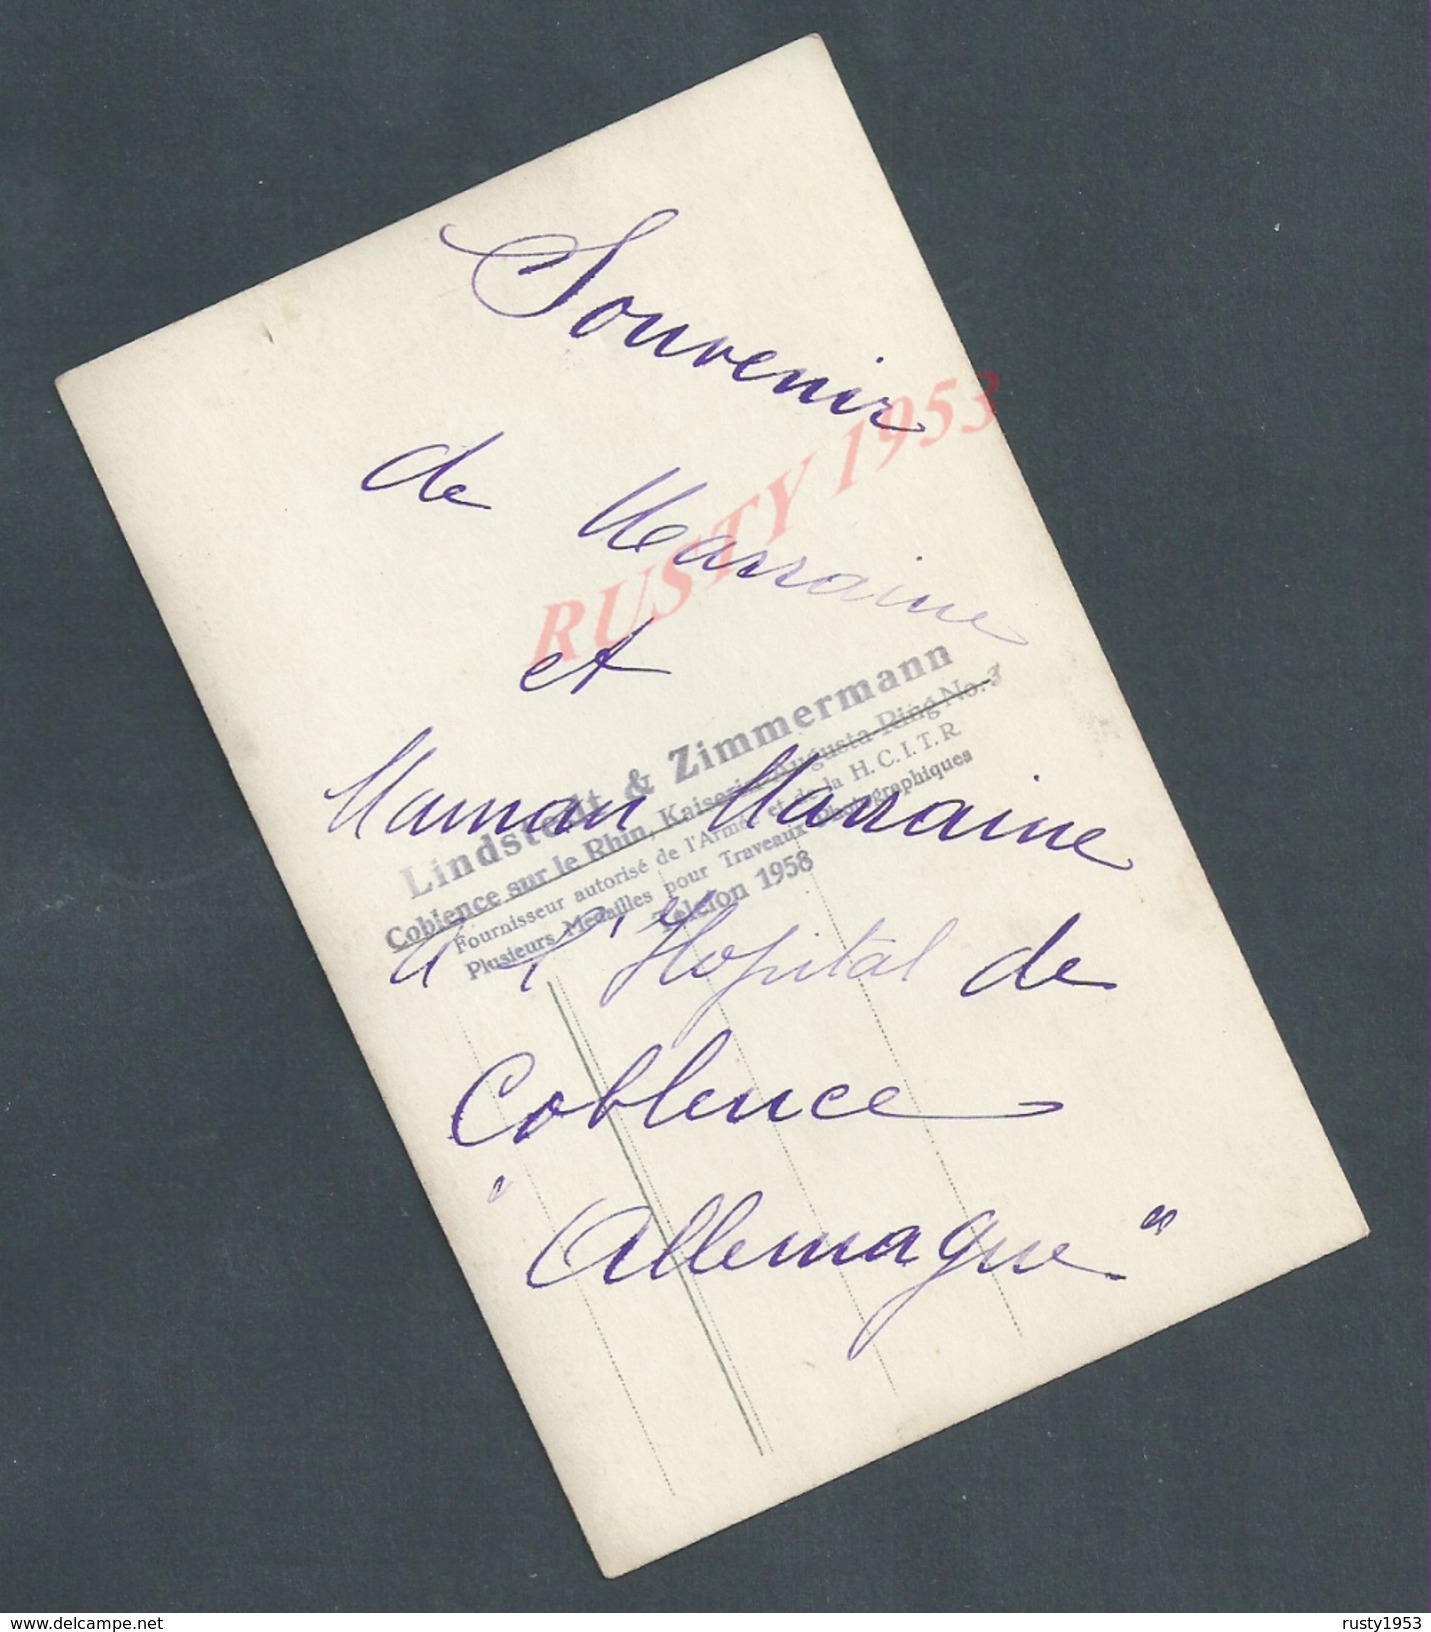 Souvenir
de Marraine
et
Maman Marraine
A l'Hopital de
Coblence
"Allemagne"
Lindstedt & Zimmermann
Coblence sur le Rhin, Kaiserin-Augusta-Ring No. 3
Fournisseur autorisé de l'Armée et de la H.C.I.T.R
Plusieurs Medailles pour Traveaux photographiques
Telefon 1958
RUSTY 1953
delcampe.net
rusty1953